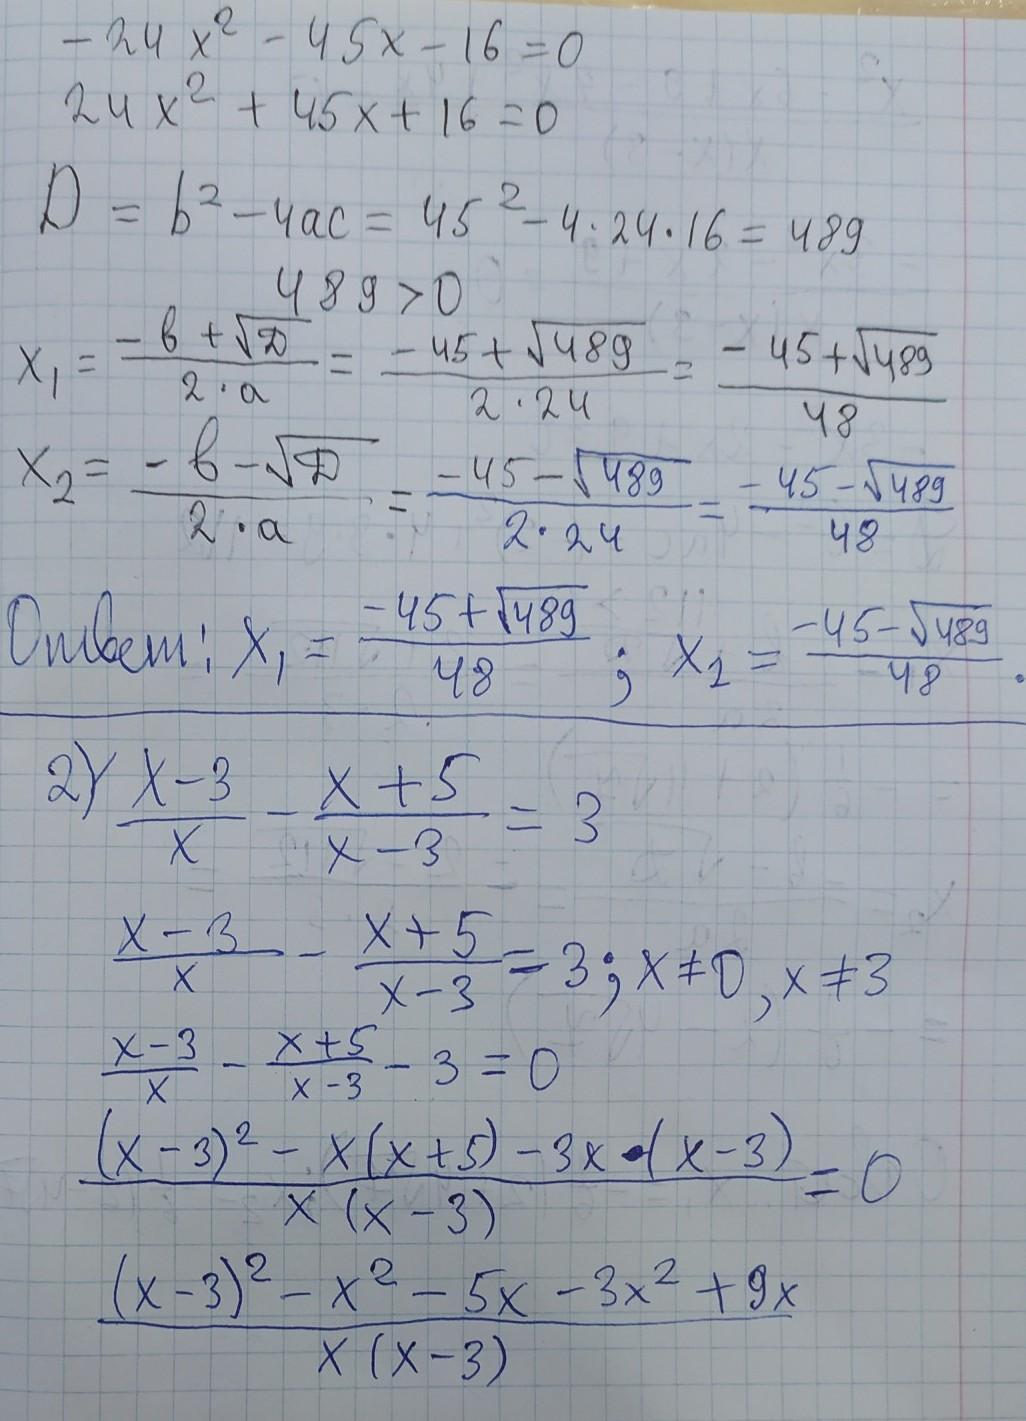 -24x² - 45x - 16 = 0
24x² + 45x + 16 = 0
D = b² - 4ac = 45² - 4·24·16 = 489
489 > 0
x₁ = (-b + √D)/(2·a) = (-45 + √489)/(2·24) = (-45 + √489)/48
x₂ = (-b - √D)/(2·a) = (-45 - √489)/(2·24) = (-45 - √489)/48
Ответ: x₁ = (-45 + √489)/48 ; x₂ = (-45 - √489)/48 .
2) (x-3)/x - (x+5)/(x-3) = 3
(x-3)/x - (x+5)/(x-3) = 3; x ≠ 0, x ≠ 3
(x-3)/x - (x+5)/(x-3) - 3 = 0
((x-3)² - x(x+5) - 3x·(x-3))/(x(x-3)) = 0
((x-3)² - x² - 5x - 3x² + 9x)/(x(x-3))